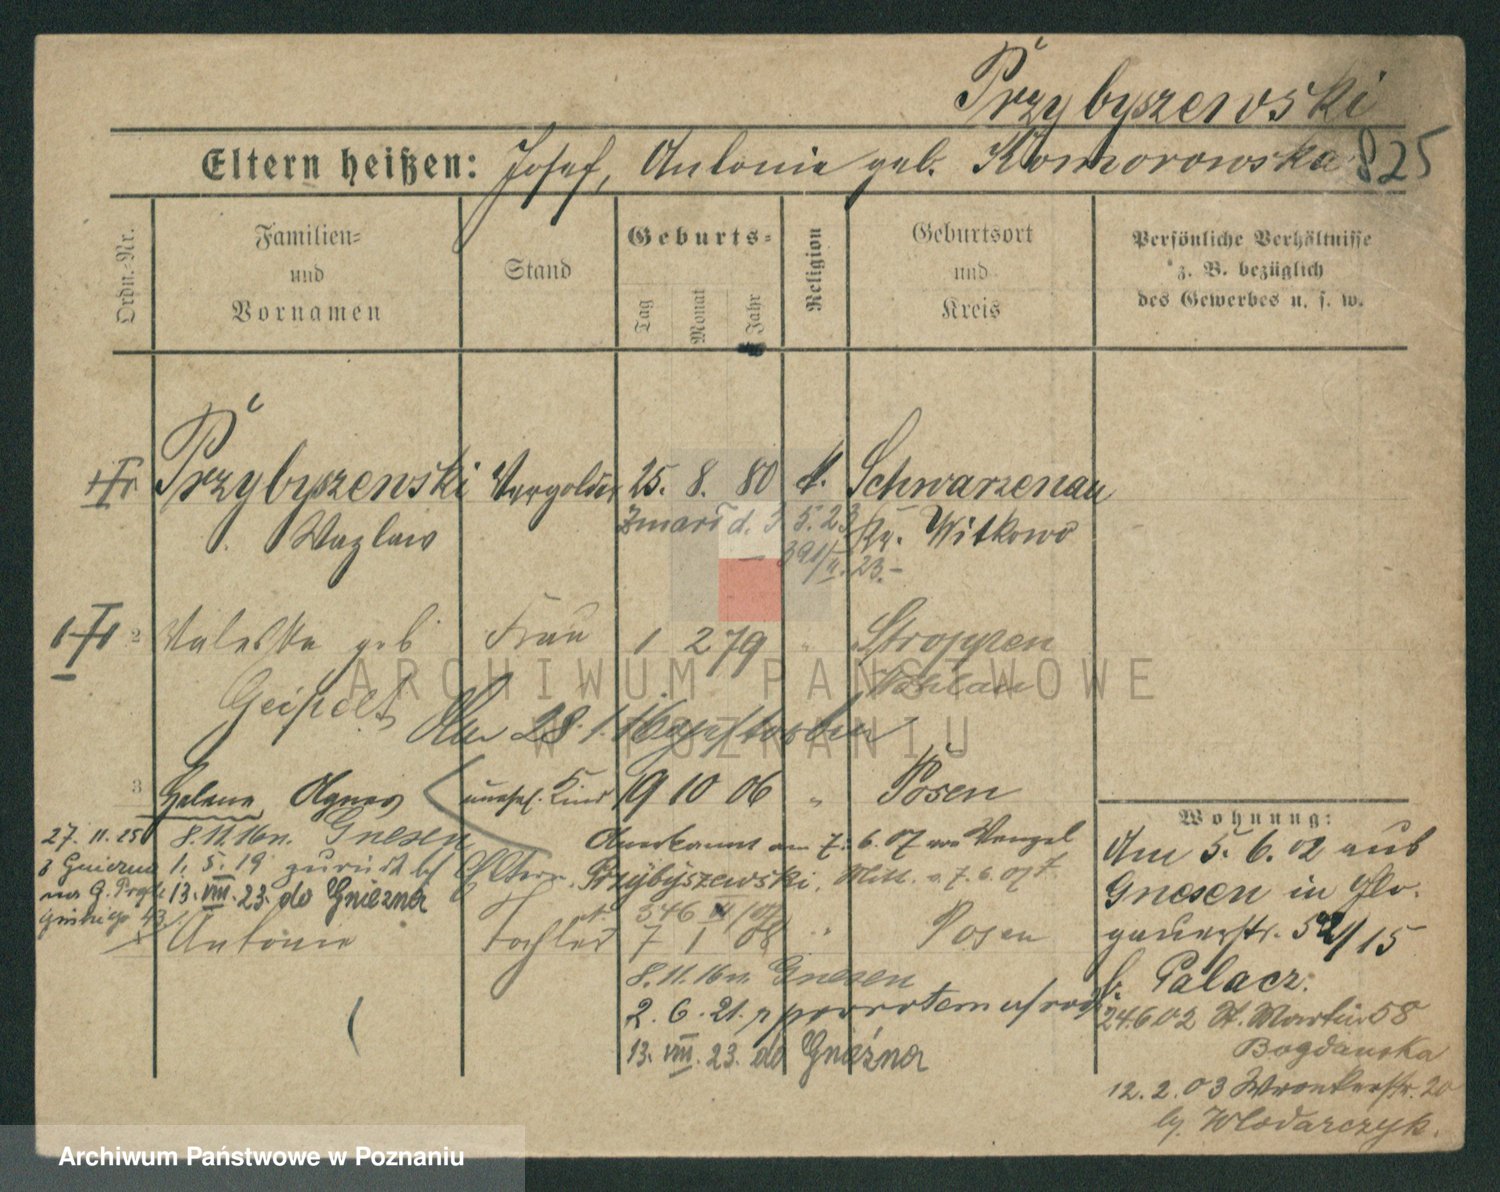 Przybyszewski
Eltern heißen: Josef, Antonie geb. Komorowska 825
Ordn. Nr.
Familien- und Vornamen
Stand
Geburts-
Tag Monat Jahr
Religion
Geburtsort und Kreis
Persönliche Verhältnisse
z. B. bezüglich
des Gewerbes u. s. w.
Przybyszewski Vergolder 25. 8. 80 k. Schwarzenau
Wazlaw Zmarł d. 3 5. 23 Kr. Witkowo
391/II. 23.-
2 geb. Frau 1 2 79 "
Geipelt Wohlau
Am 28. 1. 16 gestorben
3 Helene Agnes unehel. Kind 19 10 06 " Posen
8.11.16 n. Gnesen Anerkannt am 7. 6. 07 von Wenzel
27. 11. 25
z Gniezna 1. 5. 19 zurück bei Eltern. Przybyszewski. Mitt. v. 7. 6. 07
13. VIII. 23. do Gniezna
346 /07
Antonie Tochter 7 1 08 " Posen
8.11.16 n. Gnesen
2. 6. 21. z powrotem
13. VIII. 23. do Gniezna
Wohnung:
Am 5. 6. 02 aus
Gnesen in Glo-
gauerstr. /15
b. Palacz.
24.6.02 St. Martin 58
Bogdanska
12. 2. 03 Wronkerstr. 20
by. Wlodarczyk.
ARCHIWUM PAŃSTWOWE
W POZNANIU
Archiwum Państwowe w Poznaniu